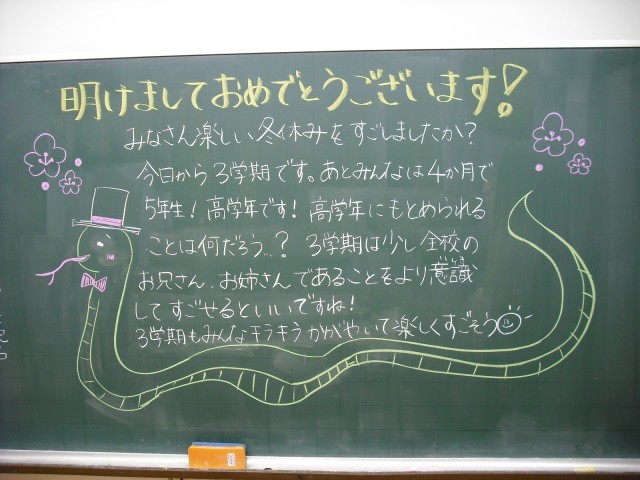 明けましておめでとうございます!
みなさん楽しい冬休みをすごしましたか?
今日から3学期です。あとみんなは4か月で
5年生!高学年です!高学年にもとめられる
ことは何だろう…?3学期は少し全校の
お兄さん、お姉さんであることをより意識
してすごせるといいですね!
3学期もみんなキラキラかがやいて楽しくすごそう